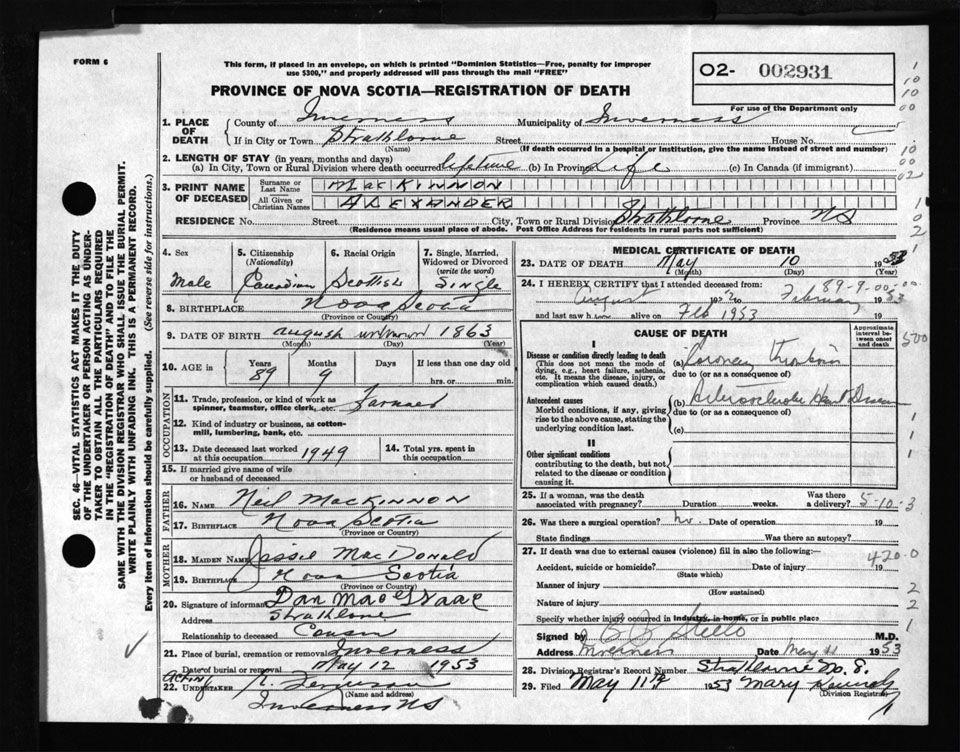 FORM 6
This form, if placed in an envelope, on which is printed "Dominion Statistics—Free, penalty for improper
use $300," and properly addressed will pass through the mail "FREE"
O2- 002931
For use of the Department only
PROVINCE OF NOVA SCOTIA—REGISTRATION OF DEATH
1. PLACE OF DEATH
County of Inverness Municipality of Inverness
If in City or Town Strathlorne Street House No.
(Name) (If death occurred in a hospital or institution, give the name instead of street and number)
2. LENGTH OF STAY (in years, months and days)
(a) In City, Town or Rural Division where death occurred lifetime (b) In Province Life (c) In Canada (if immigrant)
3. PRINT NAME OF DECEASED
Surname or Last Name MacKINNON
All Given or Christian Names ALEXANDER
RESIDENCE No. Street City, Town or Rural Division Strathlorne Province NS
(Residence means usual place of abode. Post Office Address for residents in rural parts not sufficient)
4. Sex Male
5. Citizenship (Nationality) Canadian
6. Racial Origin Scottish
7. Single, Married, Widowed or Divorced (write the word) Single
8. BIRTHPLACE Nova Scotia
(Province or Country)
9. DATE OF BIRTH august unknown 1863
(Month) (Day) (Year)
10. AGE in Years 89 Months 9 Days If less than one day old
hrs. or min.
OCCUPATION
11. Trade, profession, or kind of work as
spinner, teamster, office clerk, etc. Farmer
12. Kind of industry or business, as cotton-
mill, lumbering, bank, etc.
13. Date deceased last worked
at this occupation 1949
14. Total yrs. spent
in this occupation
15. If married give name of wife
or husband of deceased
FATHER
16. NAME Neil MacKinnon
17. BIRTHPLACE Nova Scotia
(Province or Country)
MOTHER
18. MAIDEN NAME Jessie MacDonald
19. BIRTHPLACE Nova Scotia
(Province or Country)
20. Signature of informant Dan MacIsaac
Address Strathlorne
Relationship to deceased Cousin
21. Place of burial, cremation or removal Inverness
Date of burial or removal May 12 1953
Acting
22. UNDERTAKER Ferguson
(Name and address)
Inverness NS
MEDICAL CERTIFICATE OF DEATH
23. DATE OF DEATH May 10 1953
(Month) (Day) (Year)
24. I HEREBY CERTIFY that I attended deceased from: 89-9-00-00
August 19 to February 1953
and last saw h alive on Feb 1953
CAUSE OF DEATH
Approximate interval between onset and death
I
Disease or condition directly leading to death
(This does not mean the mode of
dying, e.g., heart failure, asthenia,
etc. It means the disease, injury, or
complication which caused death.)
(a) Coronary Thrombosis
due to (or as a consequence of)
Antecedent causes
Morbid conditions, if any, giving
rise to the above cause, stating the
underlying condition last.
(b) Arteriosclerotic Heart Disease
due to (or as a consequence of)
(c)
II
Other significant conditions
contributing to the death, but not
related to the disease or condition
causing it.
25. If a woman, was the death
associated with pregnancy? Duration weeks. Was there
a delivery? 5-10-3
26. Was there a surgical operation? no. Date of operation 19
State findings Was there an autopsy?
27. If death was due to external causes (violence) fill in also the following:
420-0
Accident, suicide or homicide? Date of injury 19
(State which)
Manner of injury
(How sustained)
Nature of injury
Specify whether injury occurred in industry, in home, or in public place
Signed by M.D.
Address Inverness Date May 11 1953
28. Division Registrar's Record Number Strathlorne No. 8.
29. Filed May 11th 1953 Mary Kennedy
(Division Registrar)
SEC. 46—VITAL STATISTICS ACT MAKES IT THE DUTY
OF THE UNDERTAKER OR PERSON ACTING AS UNDER-
TAKER TO OBTAIN ALL THE PARTICULARS REQUIRED
IN THE "REGISTRATION OF DEATH" AND TO FILE THE
SAME WITH THE DIVISION REGISTRAR WHO SHALL ISSUE THE BURIAL PERMIT.
WRITE PLAINLY WITH UNFADING INK. THIS IS A PERMANENT RECORD.
Every item of information should be carefully supplied. (See reverse side for instructions.)